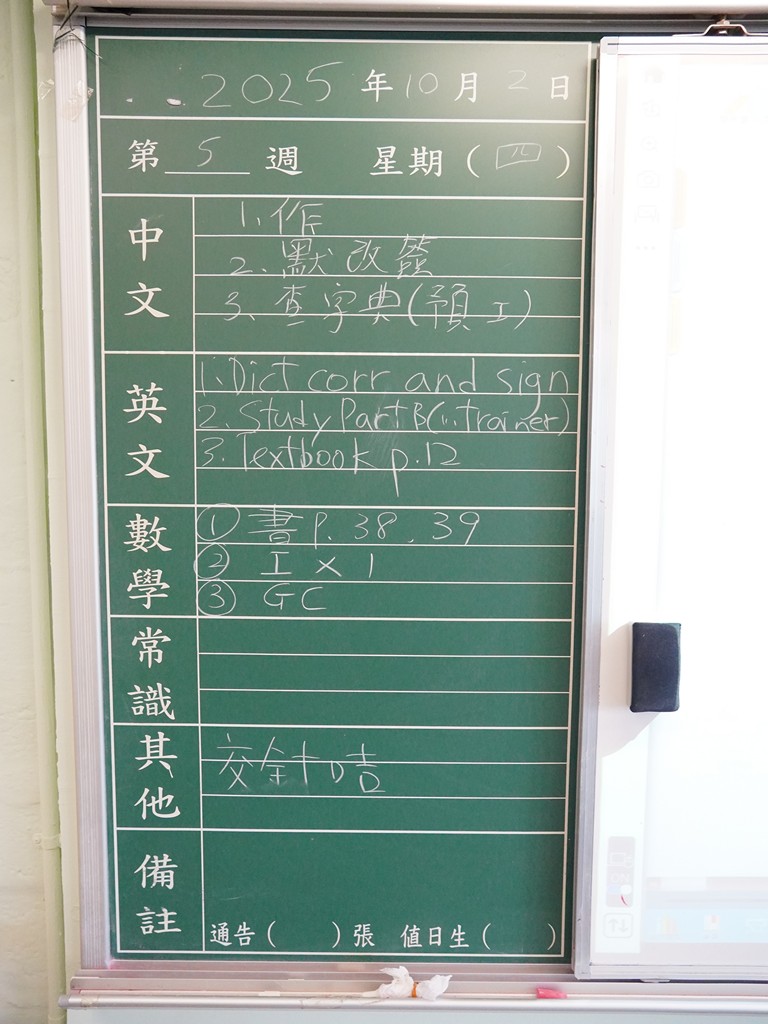 2025 年 10 月 2 日
第 5 週 星期 ( 四 )
中文
1. 作
2. 默改簽
3. 查字典(預工)
英文
1. Dict corr and sign
2. Study Part B(i.Trainer)
3. Textbook p.12
數學
① 書 p. 38 . 39
② 工 × 1
③ GC
常識
其他
交全
備註
通告 ( ) 張 值日生 ( )